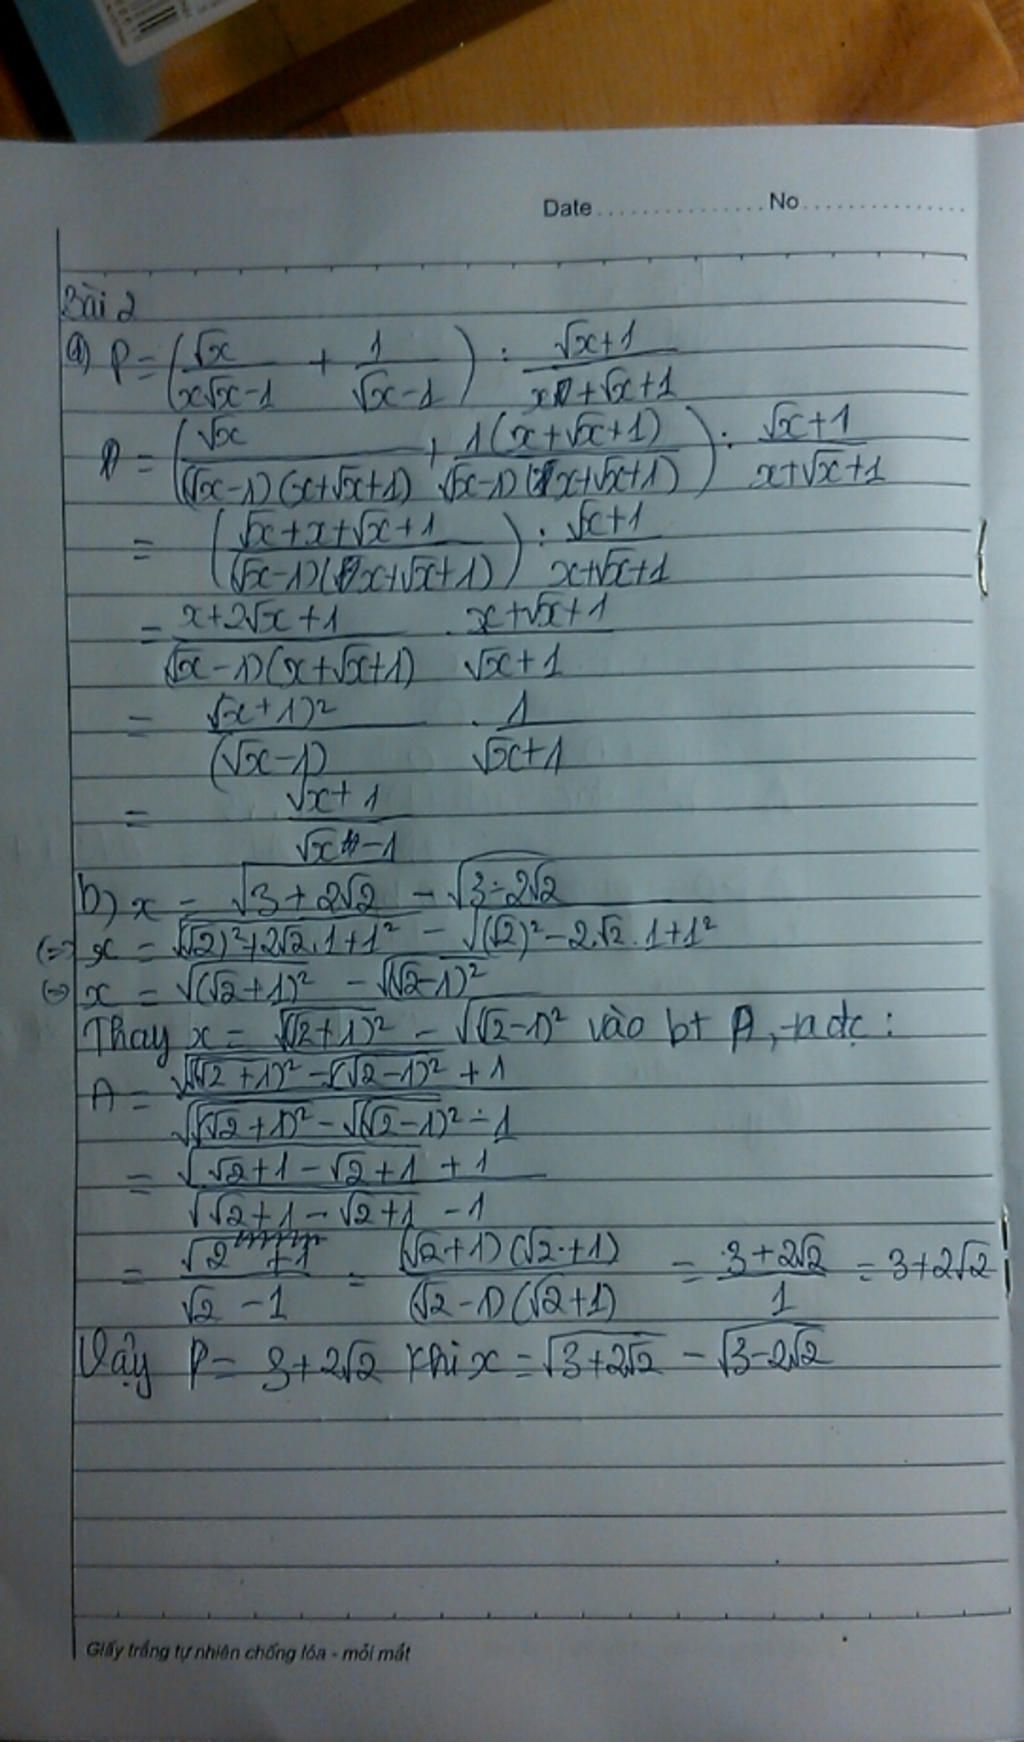 Date ................ No ................
Bài 2
a) P = (√x / (x√x-1) + 1 / (√x-1)) : (√x+1) / (x+√x+1)
P = (√x / ((√x-1)(x+√x+1)) + 1(x+√x+1) / (√x-1)(x+√x+1)) : (√x+1) / (x+√x+1)
= ((√x+x+√x+1) / ((√x-1)(x+√x+1))) : (√x+1) / (x+√x+1)
= (x+2√x+1) / ((√x-1)(x+√x+1)) . (x+√x+1) / (√x+1)
= (√x+1)² / (√x-1) . 1 / (√x+1)
= (√x+1) / (√x-1)
b) x = √(3+2√2) - √(3-2√2)
(=) x = √((√2)²+2√2.1+1²) - √((√2)²-2.√2.1+1²)
(=) x = √((√2+1)²) - √((√2-1)²)
Thay x = √((√2+1)²) - √((√2-1)²) vào bt A, ta đc :
A = (√(√(√2+1)² - √(√2-1)²) + 1) / (√(√(√2+1)² - √(√2-1)²) - 1)
= (√(√2+1-√2+1) + 1) / (√(√2+1-√2+1) - 1)
= (√2+1) / (√2-1) = (√2+1)(√2+1) / (√2-1)(√2+1) = (3+2√2) / 1 = 3+2√2
Vậy P = 3+2√2 khi x = √(3+2√2) - √(3-2√2)
Giấy trắng tự nhiên chống lóa - mỏi mắt